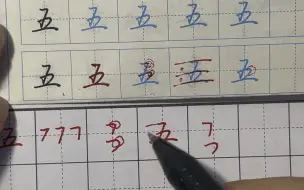 五 五 五 五 五
五 五 五 五 五
五 五